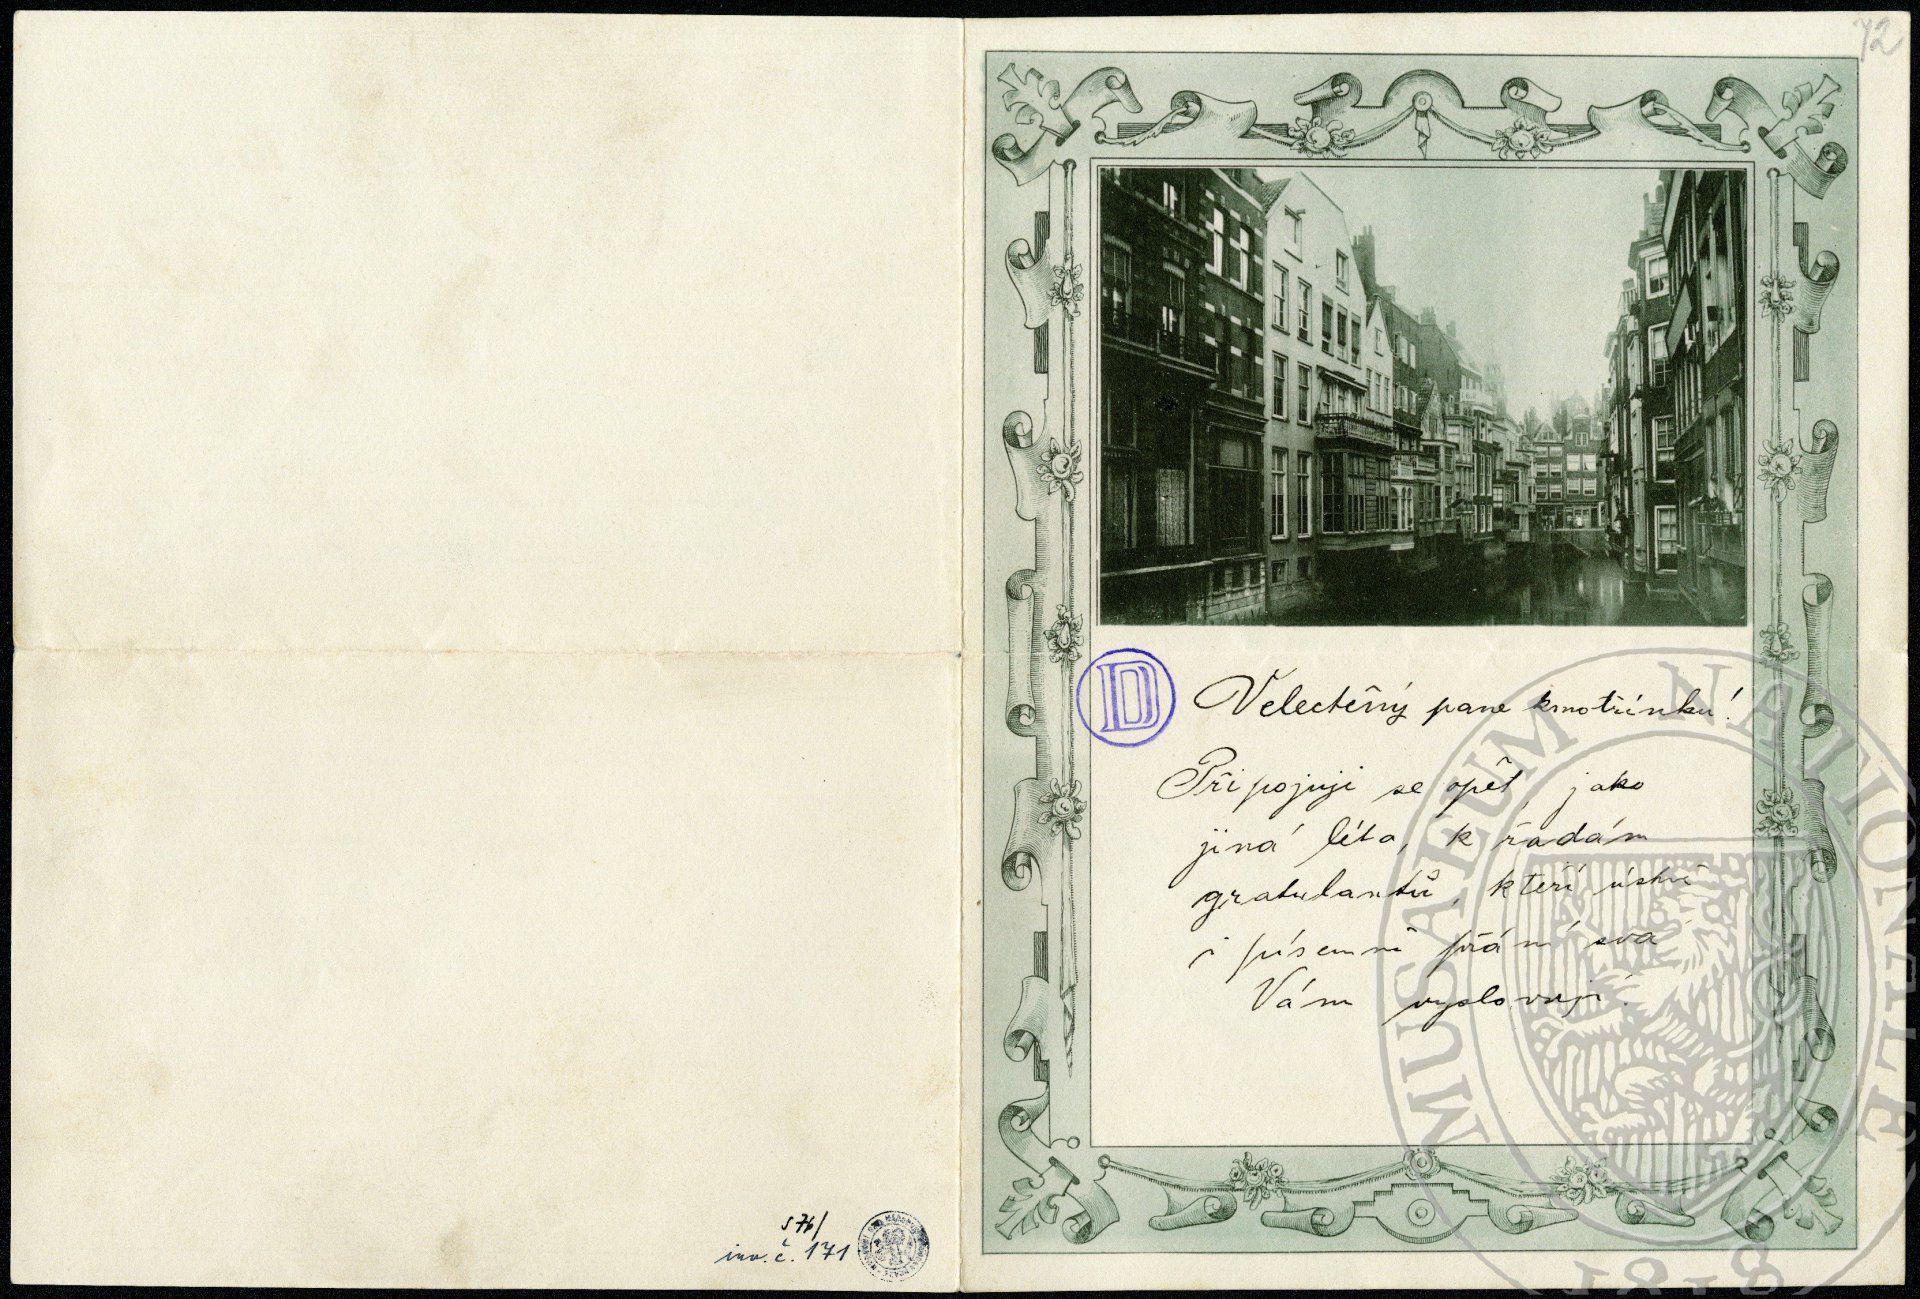 72
D
Velectěný pane kmotřínku!
Připojuji se opět, jako
jiná léta, k řadám
gratulantů, kteří ústně
i písemně přání svá
Vám vyslovují.
S 76/
inv. č. 171
MUSAEUM NATIONALE
1818